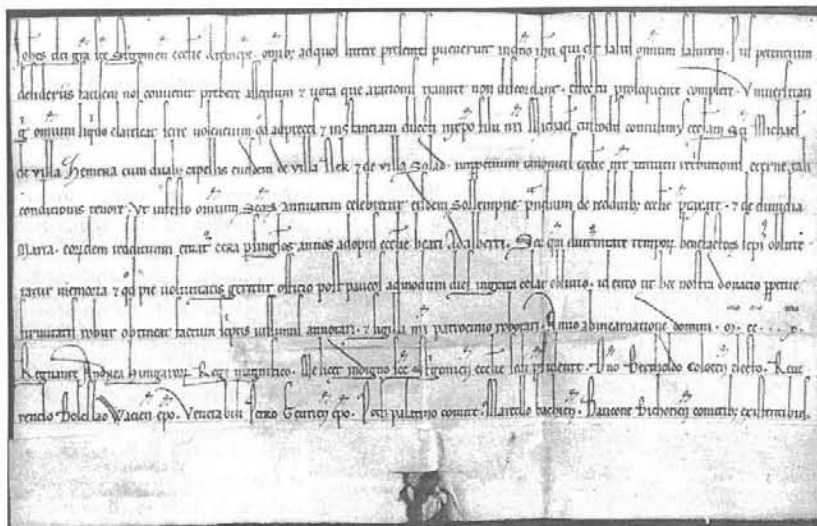 Johes dei gra sce Strigonien ecclie Archiepc. omib; ad quos littere presentes puenerint in dno ihu qui est salus omnium salutem. Justis petencium
desideriis facilem nos convenit prebere assensum et vota que a racionis tramite non discordant. effectu prosequente complere. Universitati
omnium liqdo clarescat scire volencium qd ad preces et instanciam dilecti filii nri Michael custodi contulimus ecclam Sci Michael
de villa Semera cum duab; capellis eiusdem de villa Nek et de villa Solad. tali
condicionis tenore. Ut in festo omnium Scorum annuatim celebritati eiusdem sollempne prandium de redditib; ecclie preparet. et de dimidia
Marca. eordem reddituum emat cera singlos annos ad opus ecclie beati Adalberti. Set qm diuturnitate temporis benefactoris sepe
memoria et qd pie voluntatis geritur officio post paucos admodum dies celat oblivio. idcirco ut hec nostra donacio ppetue
firmitatis robur obtineat factum annotari. et sigilli mi patrocinio roborari. Anno ab incarnatione domini. M. cc.
Regnante Andrea Hungaror Rege magnifico. Me licet indigno sce Strigonien ecclie sedi psidente. Dno Bertholdo Colocen electo. Reve
rendo Boleslao Wacien epo. Venerabili Petro Geurien epo. Poth palatino comite. Marcello bachien. Banicone Bichorien comitib; existentibus.